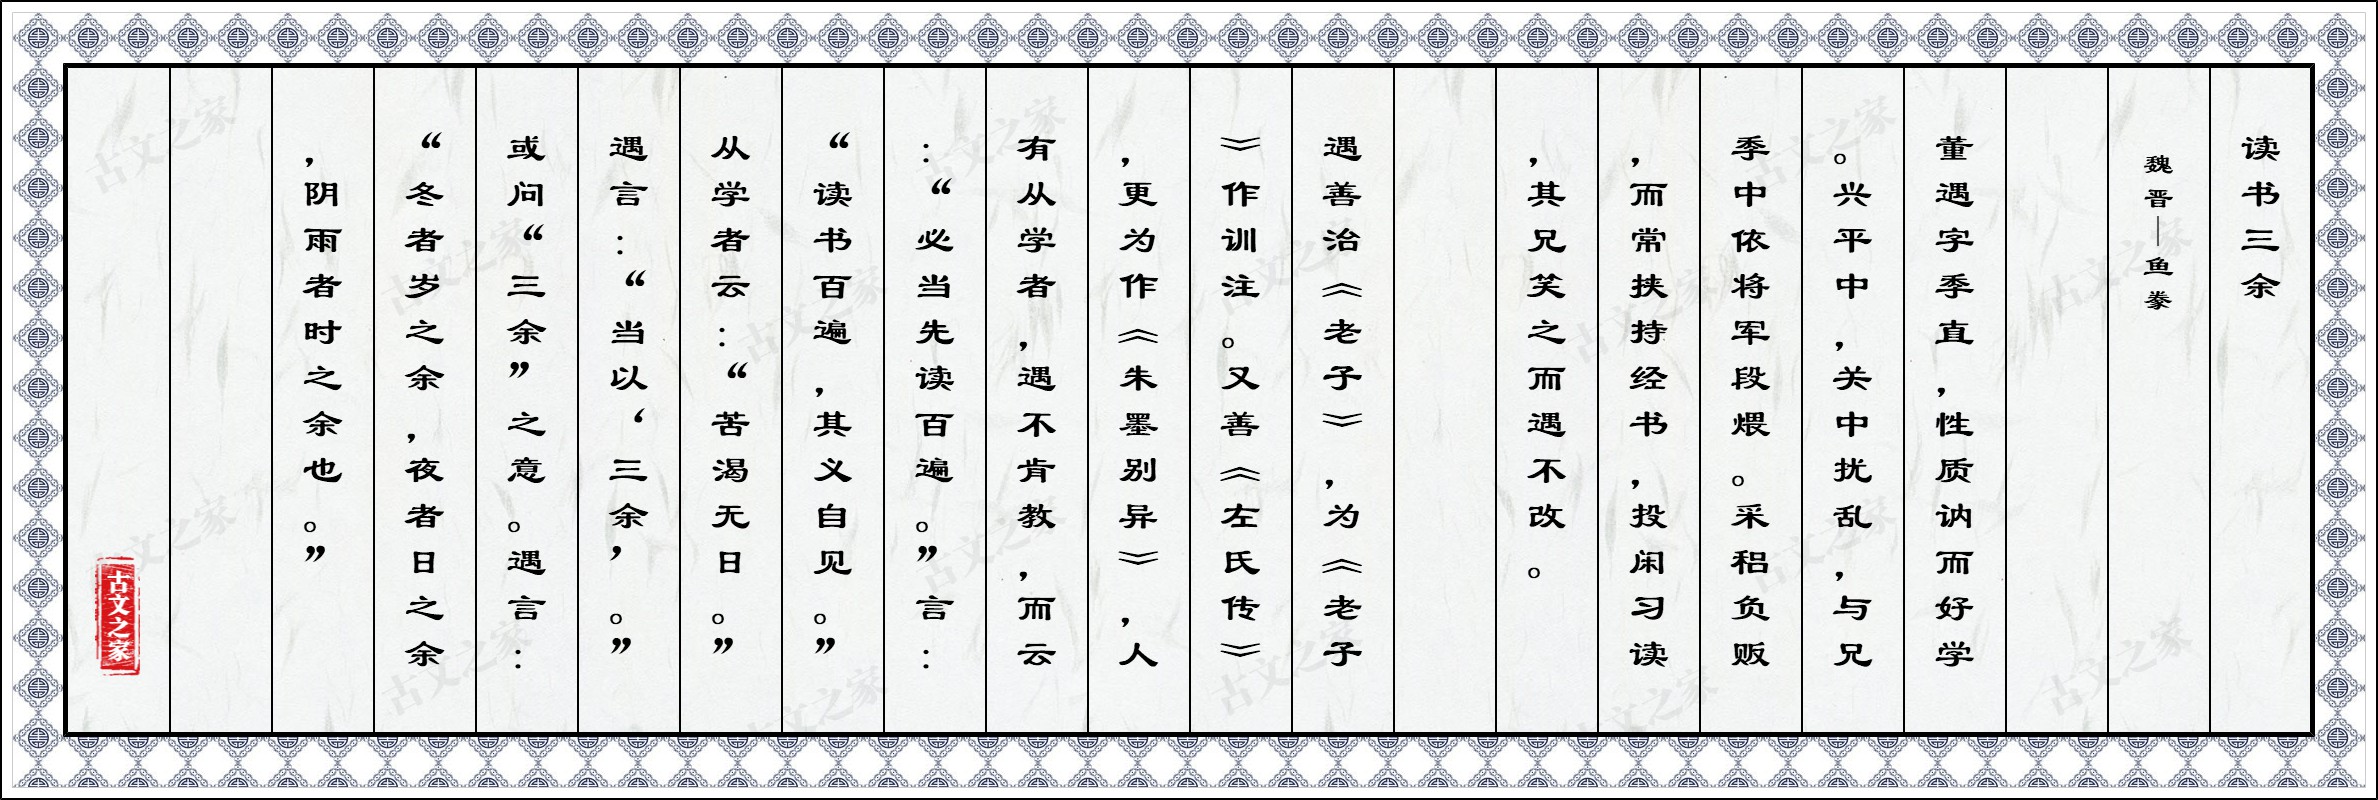 读书三余
魏晋｜鱼豢
董遇字季直，性质讷而好学
。兴平中，关中扰乱，与兄
季中依将军段煨。采稆负贩
，而常挟持经书，投闲习读
，其兄笑之而遇不改。
遇善治《老子》，为《老子
》作训注。又善《左氏传》
，更为作《朱墨别异》，人
有从学者，遇不肯教，而云
：“必当先读百遍。”言：
“读书百遍，其义自见。”
从学者云：“苦渴无日。”
遇言：“当以‘三余’。”
或问“三余”之意。遇言：
“冬者岁之余，夜者日之余
，阴雨者时之余也。”
古文之家